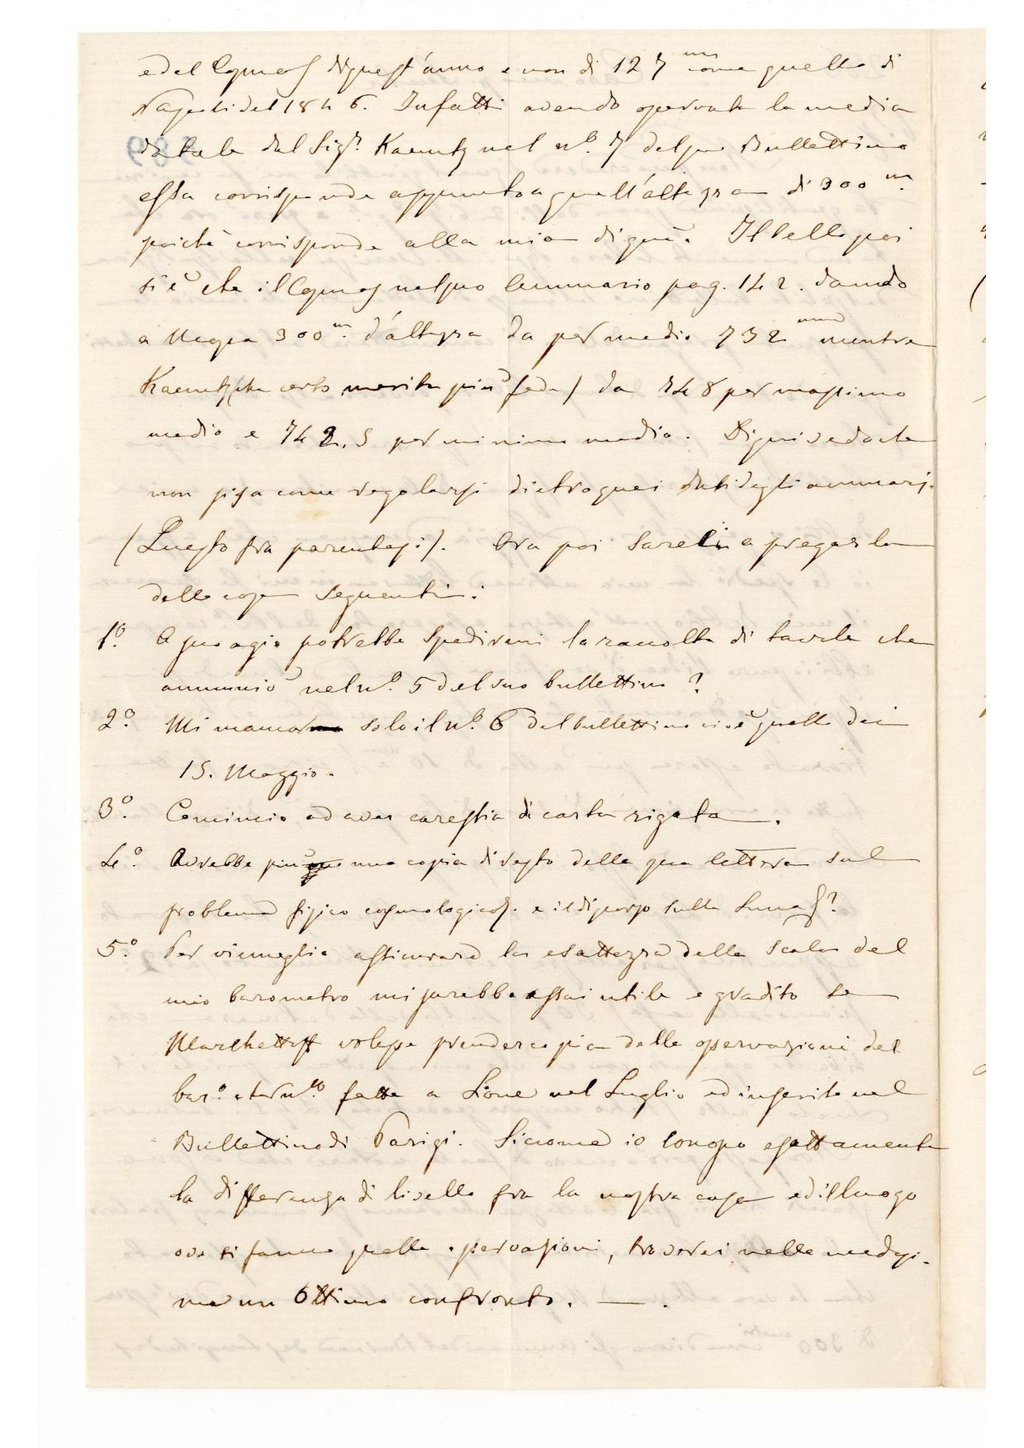 e del Cosmos di quest'anno e non di 127 m come quello di
del 1846. Infatti avendo operata la media
totale dal Sig.r Kaemtz nel n.o 7 del suo Bullettino
essa corrisponde appunto a quell'altezza di 300 m.
poichè corrisponde alla mia di qui. Il bello poi
si è che il Cosmos nel suo Annuario pag. 142. dando
a 300 m. d'altezza da per medio 732 mm mentre
Kaemtz (che certo merita più fede) da 748 per massimo
medio e 742.5 per minimo medio. Di qui vedo che
non si sa come regolarsi dietro quei dati degli annuarj.
(Questo fra parentesi). Ora poi sarei a pregarla
delle cose seguenti:
1.o A suo agio potrebbe spedirmi la raccolta di tavole che
annunciò nel n.o 5 del suo bullettino?
2.o Mi manca solo il n.o 6 del bullettino cioè quello dei
15. Maggio.
3.o Comincio ad aver carestia di carta rigata.
4.o Avrebbe più una copia di resto della sua lettera sul
problema fisico cosmologico e il discorso sulla Luna?
5.o Per viemeglio assicurare la esattezza della scala del
mio barometro mi sarebbe assai utile e gradito se
volesse prendere copia delle osservazioni del
bar.o e term.o fatte a Lione nel Luglio ed inserite nel
Bullettino di Parigi. Siccome io conosco esattamente
la differenza di livello fra la nostra casa ed il luogo
ove si fanno quelle osservazioni, troverei nelle medesi-
me un ottimo confronto. — .